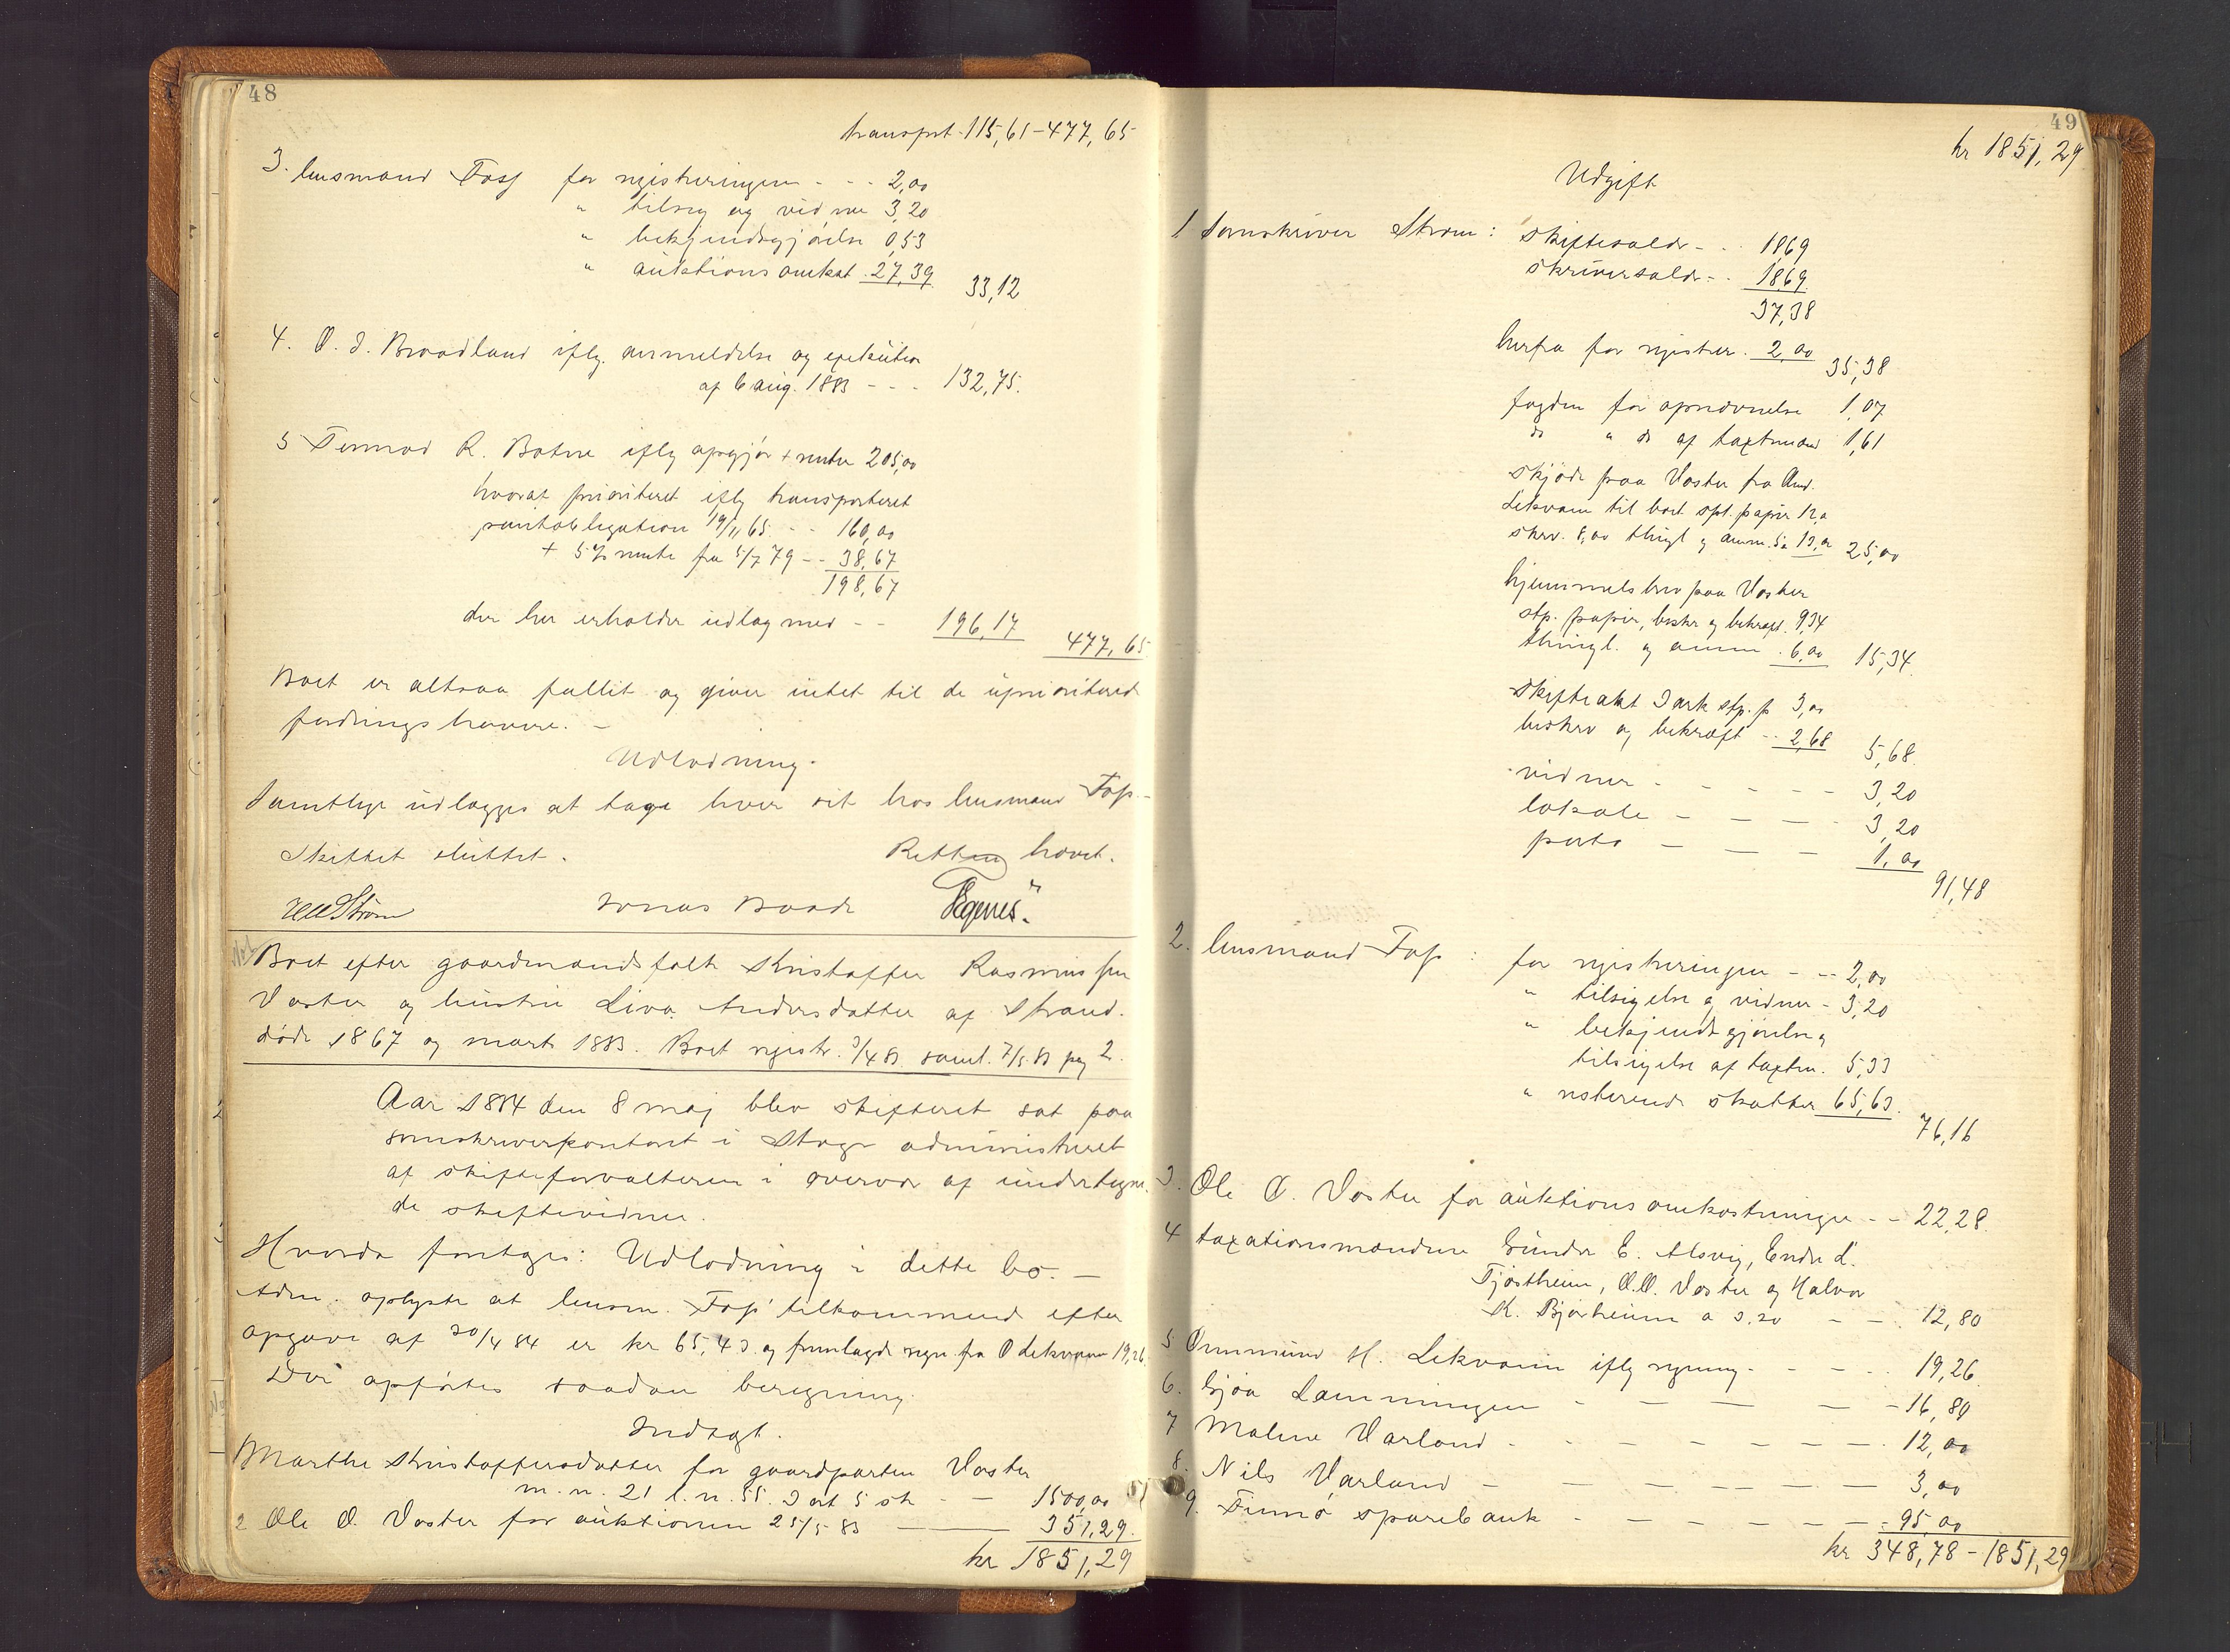 48
transprt. 115,61 – 477,65
3. lensmand Foss for registreringen - - - 2,00
" tilsig og vidner 3,20
" bekjendtgjørelse 0,53
" auktionsomkst. 27,39 33,12
4. O. J. Braadland iflg. anmeldelse og exekution
af 6 aug. 1883 - - - 132,75.
5 Tormod R. Botne iflg opgjør + renter 205,00
hvoraf prioriteret iflg transporteret
pantobligation 19/11 65 - - 160,00
+ 5 % rente fra 5/7 79 - - 38,67
198,67
der her erholder udlæg med - - 196,17 477,65
Boet er altsaa fallit og giver intet til de uprioriterede
fordringshavere. –
Udlodning.
Samtlige udlægges at tage hver sit hos lensmand Foss. –
Skiftet sluttet. Retten hævet.
Strøm Jonas Baade
Boet efter gaardmandsfolk Kristoffer Rasmussen
Vaster og hustru Liva Andersdatter af Strand.
døde 1867 og marts 1883. Boet registr. 3/4 83. saml. 7/5 83 pag 2.
Aar 1884 den 8 maj blev skifteret sat paa
sorenskriverkontoret i Stage administreret
af skifteforvalteren i overvær af undertegne-
de skiftevidner.
Hvorda foretoges: Udlodning i dette bo. –
Adm. oplyste at lensm. Foss' tilkommende efter
opgave af 30/4 84 er kr 65,43 og fremlagde regn. fra O Lekvam 19,26.
Derí opførtes saadan beregning.
Indtægt.
Marthe Kristoffersdatter for gaardparten Vaster
m. n. 21 l. n. 55. 3 ort 5 sk - – 1500,00
2 Ole O. Vaster for auktionen 25/5 83 — 351,29.
kr 1851,29
49
kr 1851,29
Udgift
1 Sorenskriver Strøm: skiftesalær - - . 18,69
skriversalær - . 18,69.
37,38
herfra for registr. . 2,00 35,38
fogden for opnævnelse 1,07
do " do af taxtmænd 1,61
skjøde paa Vaster fra Amd.
Lekvam til boet spt. papir 12,0
skrv. 8,00 thingl og anm. 5,0 13,00 25,00
hjemmelsbrev paa Vaster
stp. papir, beskr og bekræft. 9,34
thingl. og anm . 6,00 15,34.
Skifteakt 3 ark stp. p 3,00
beskrv og bekræft - - 2,68 5,68.
vidner - - - - - 3,20
lokale - - - - 3,20
porto - - - 1,00
91,48
2. lensmand Foss : for registreringen - - - 2,00
" tilsigelse og vidner - 3,20
" bekjendtgjørelse og
tilsigelse af taxtm. 5,33
" resterende skatter 65,63.
76,16
3. Ole O. Vaster for auktionsomkostninger - - 22,28.
4 taxationsmændene Gunder E. Alsvig, Endre L.
Tjøstheim, O.O. Vaster og Halvor
K. Bjørheim a 3.20 - - . 12,80
5 Ommund H. Lekvam iflg regning - - - . 19,26
6. Gjøa Lanmingen - - — – - 16,80
7 Malene Varland - - - – - - – . 12,00
8. Nils Varland - - - – - – 3,00
9. Finnø sparebank - - - - - - . 95,00
kr 348,78 – 1851,29